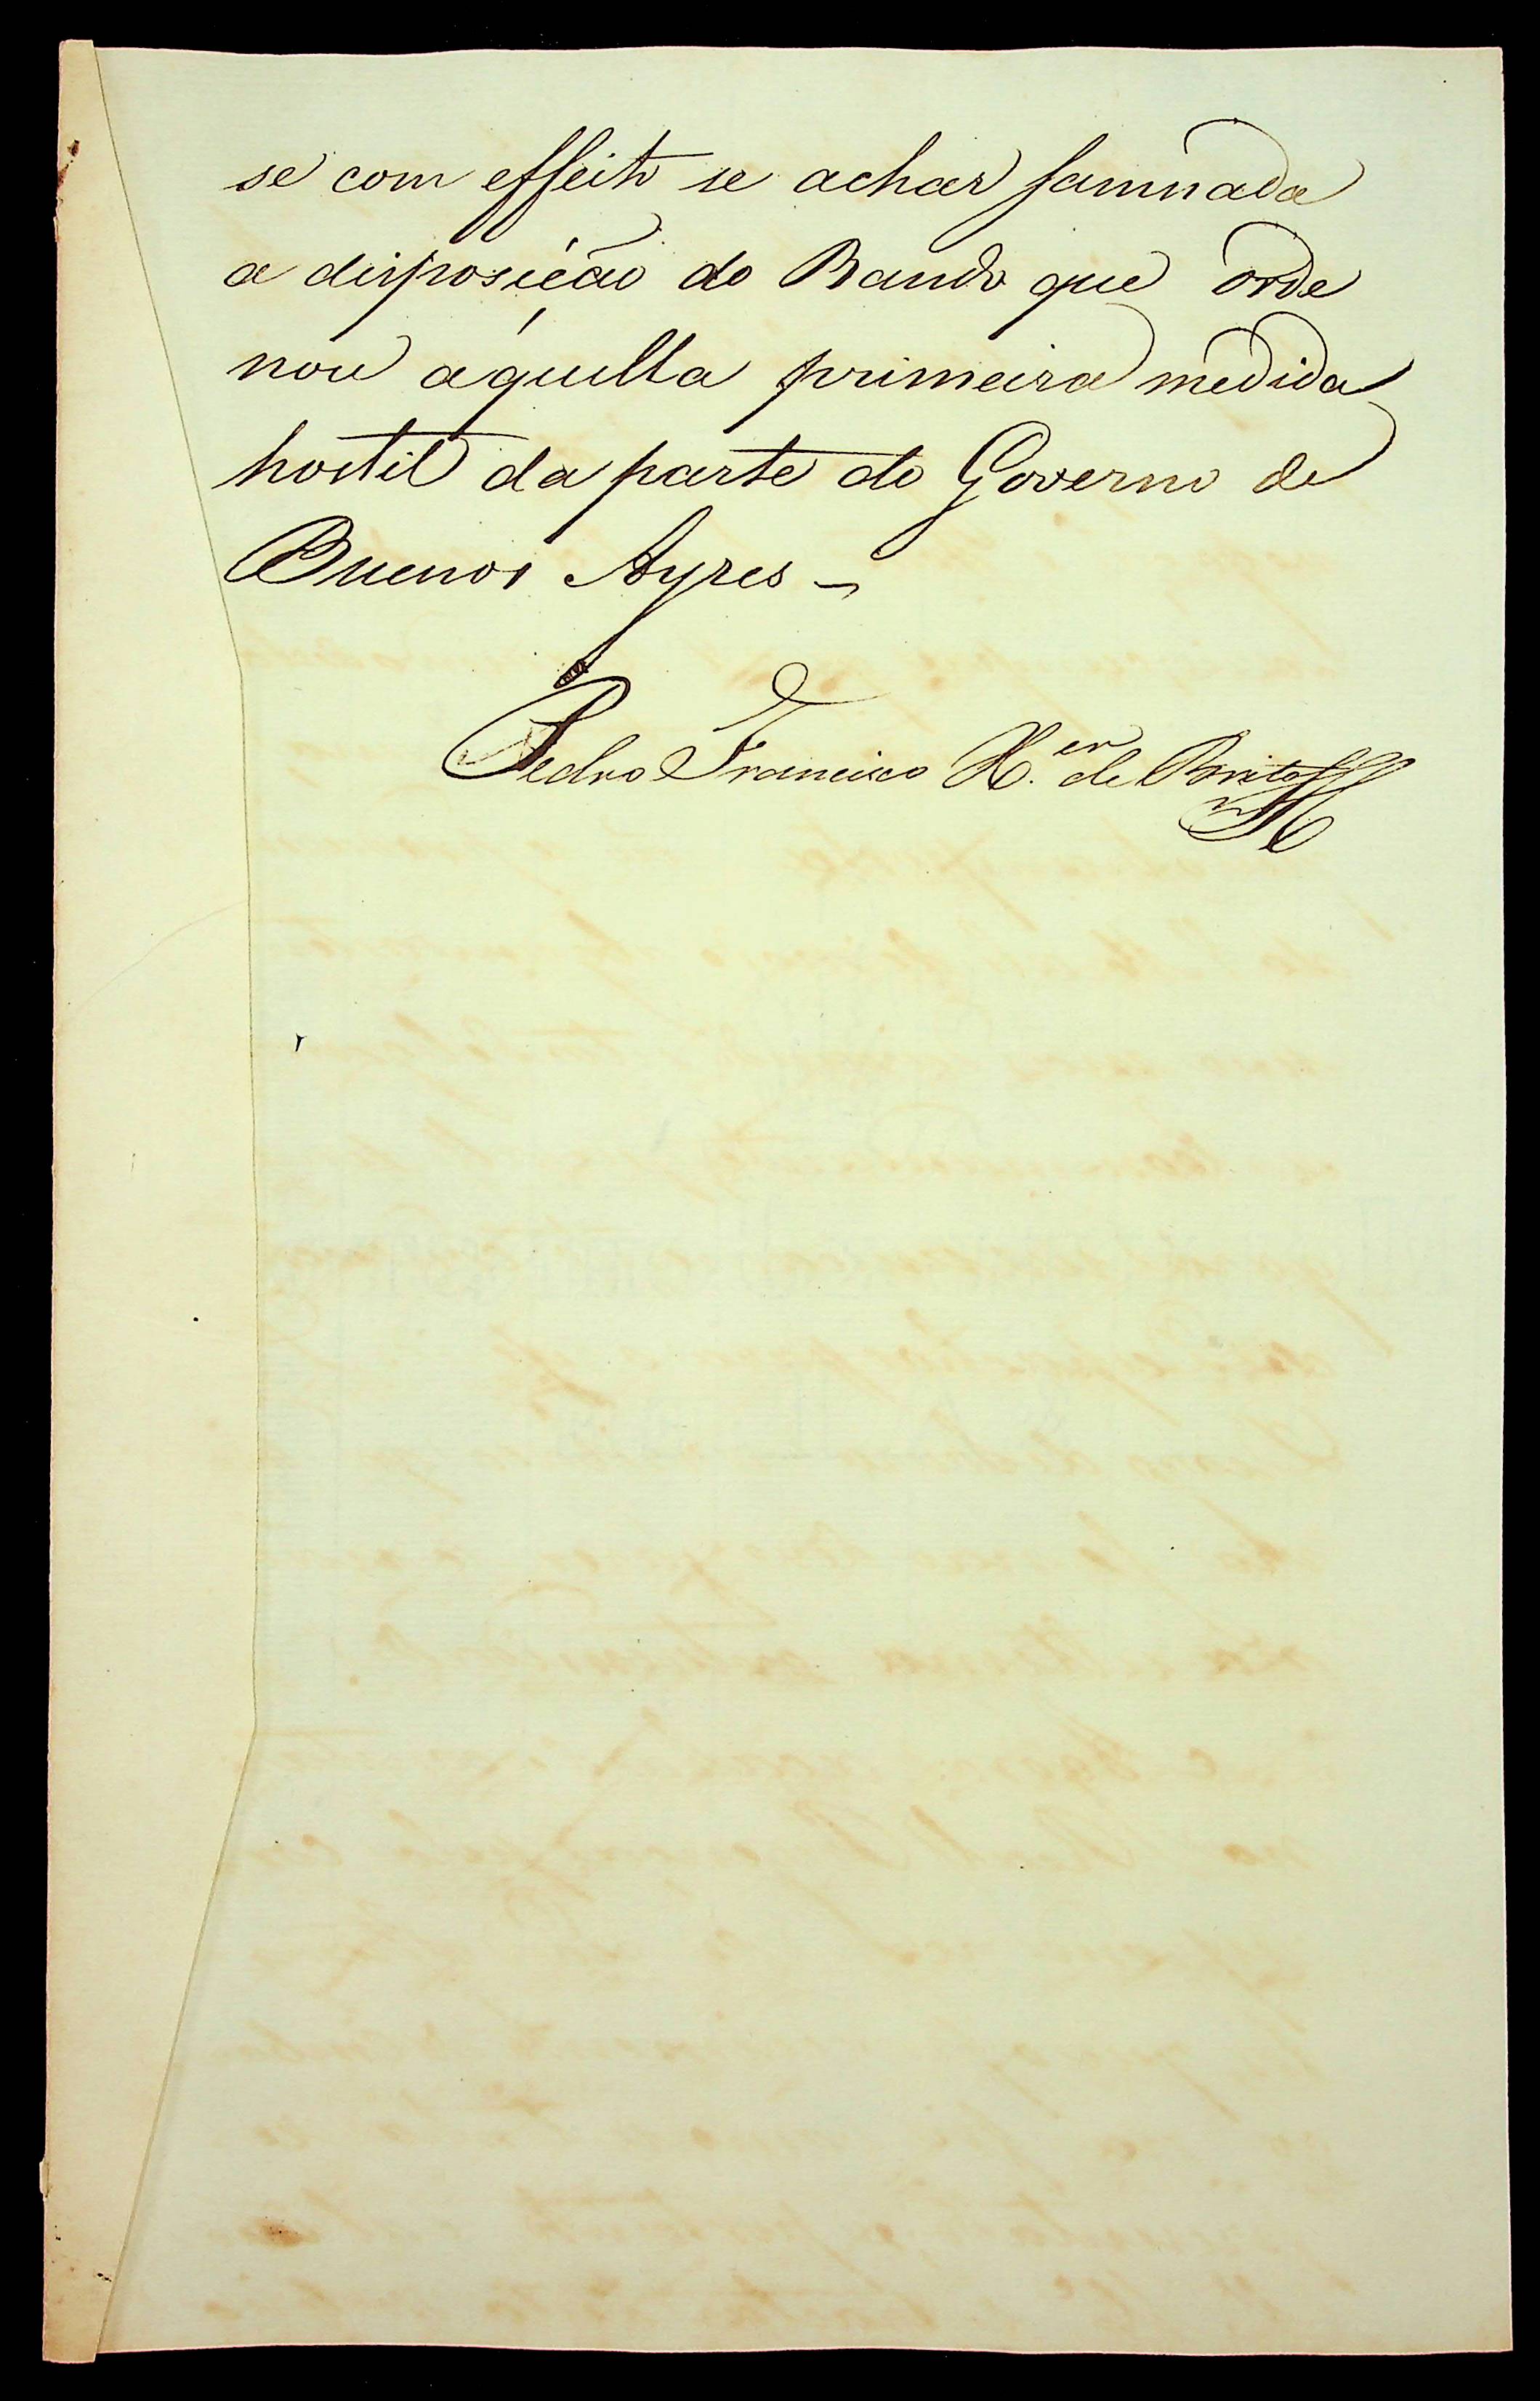 se com effeito se achar samnada
a disposição do Bando que orde
nou aquella primeira medida
hostil da parte do Governo de
Buenos Ayres
Pedro Francisco X.er de Brito